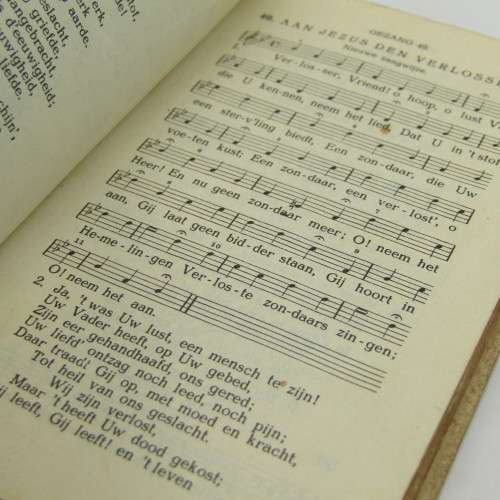 geslacht,
erk,
werk
p aarde.
angebracht,
euwigheid,
d'eeuwigheid;
liefde.
schijn',
GEZANG 46.
46. AAN JEZUS DEN VERLOSS
Nieuwe zangwijze.
1. Ver-los-ser, Vriend! o hoop, o lust V
die U ken-nen, neem het lied, Dat U in 't stof
een ster-v'ling biedt, Een zon-daar, die Uw
voe-ten kust; Een zon-daar, een ver-lost', o
Heer! En nu geen zon-daar meer; O! neem het
aan, Gij laat geen bid-der staan, Gij hoort in
He-me-lin-gen Ver-los-te zon-daars zin-gen;
O! neem het aan.
2. Ja, 't was Uw lust, een mensch te zijn!
Uw Vader heeft, op Uw gebed,
Zijn eer gehandhaafd, ons gered;
Uw liefd' ontzag noch leed, noch pijn;
Daar traadt Gij op, met moed en kracht,
Tot heil van ons geslacht.
Wij zijn verlost,
Maar 't heeft Uw dood gekost;
ij leeft, Gij leeft! en 't leven